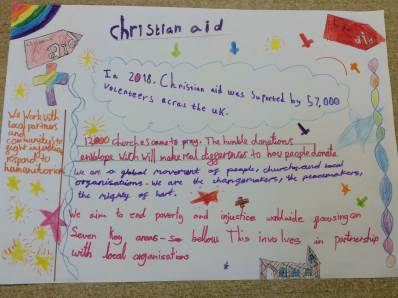 christian aid
aid
aid
In 2018. Christian aid was suported by 57,000
volenteers acros the UK.
We Work with
local partners
and
community's to
fight injustice
respond to
humanitarian
12000 churches come to pray. The humble donations
envelope with will make real differences to how people donate
We are a global movement of people, churches and local
organisations. We are the changemakers, the peacemakers,
the mighty of hart.
We aim to end poverty and injustice worldwide focusing on
Seven key areas - bellow This involves in partnership
with local organisations